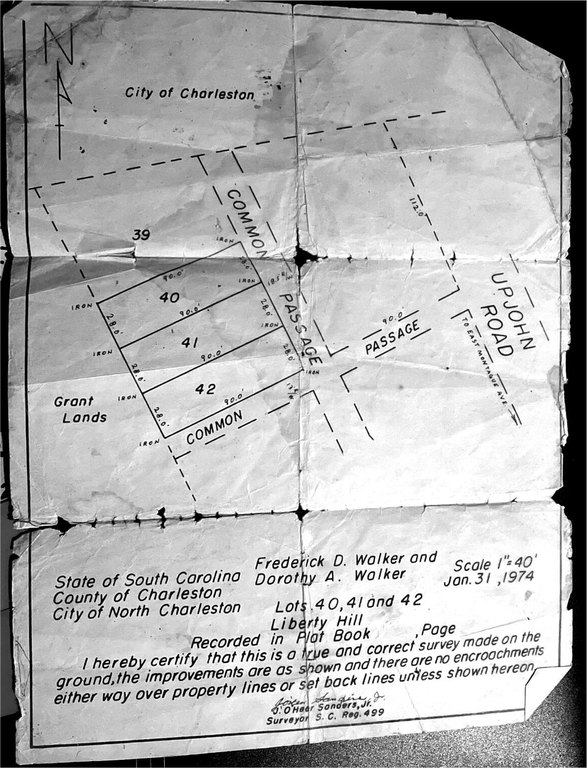 N
City of Charleston
39
COMMON
PASSAGE
112.0'
IRON
90.0'
28.0'
40
IRON
IRON
18.5'
28.0'
90.0'
UPJOHN
ROAD
28.0'
41
IRON
IRON
90.0'
28.0'
90.0'
PASSAGE
TO EAST MONTAGUE AVE.
28.0'
42
IRON
IRON
90.0'
Grant
Lands
28.0'
COMMON
IRON
State of South Carolina
County of Charleston
City of North Charleston
Frederick D. Walker and
Dorothy A. Walker
Lots 40, 41 and 42
Liberty Hill
Scale 1"=40'
Jan. 31, 1974
Recorded in Plat Book , Page
I hereby certify that this is a true and correct survey made on the
ground, the improvements are as shown and there are no encroachments
either way over property lines or set back lines unless shown hereon.
J. O'Hear Sanders, Jr.
Surveyor S. C. Reg. 499